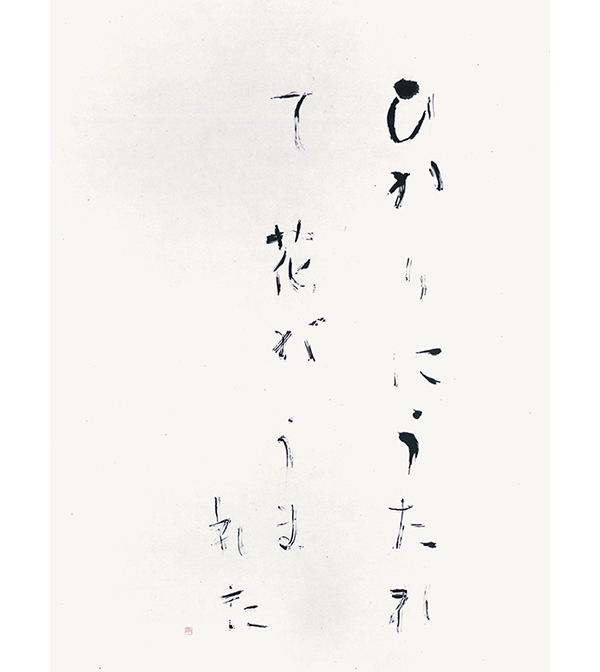 ひかりにうたれ
て花がうま
れた